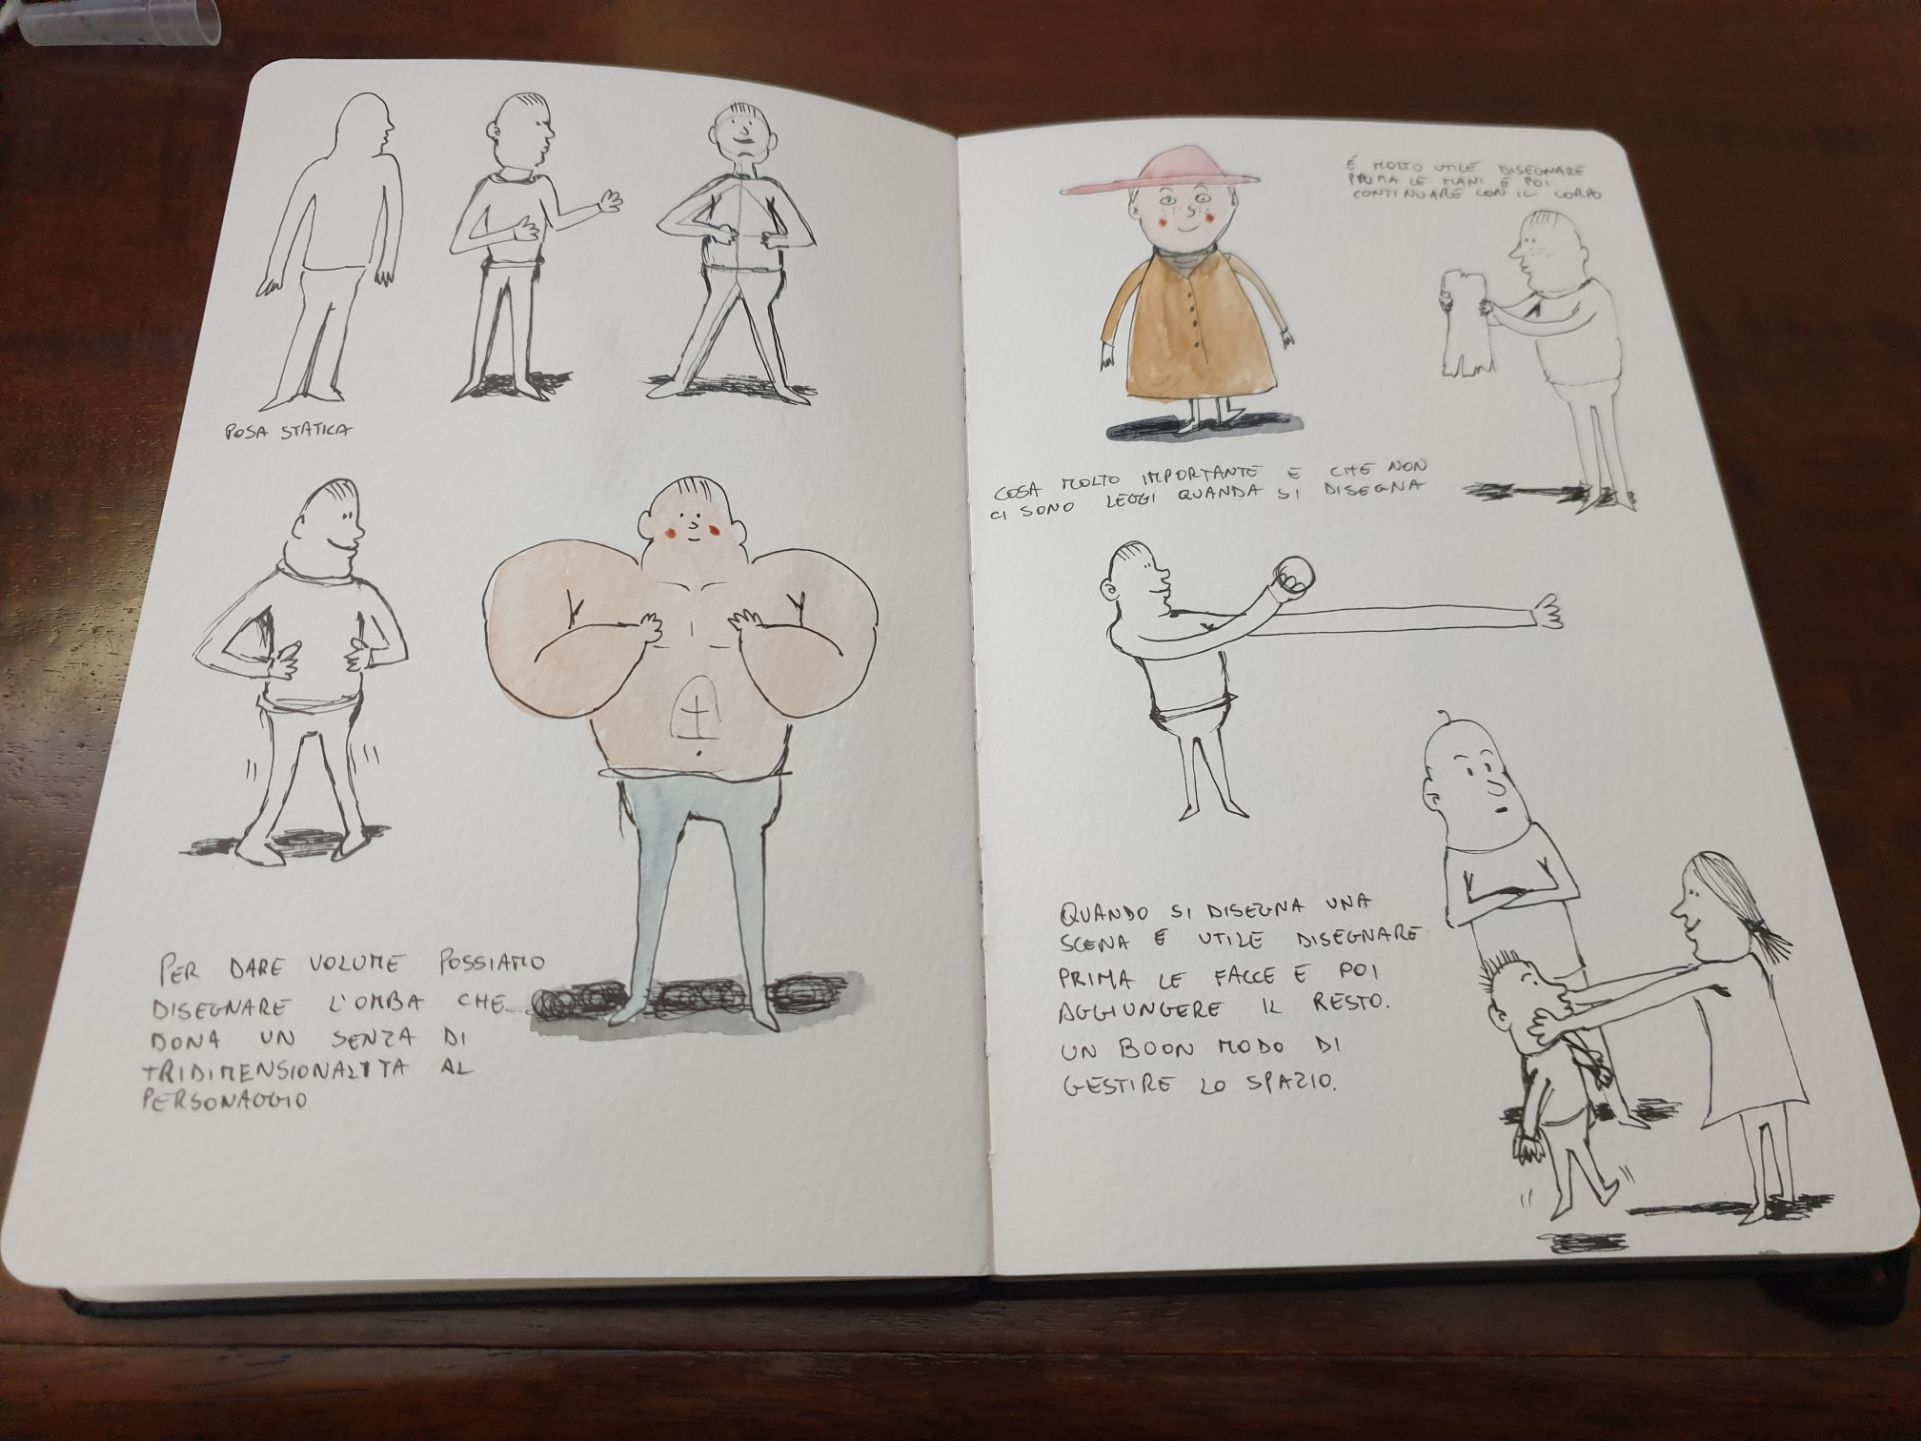 POSA STATICA
PER DARE VOLUME POSSIAMO
DISEGNARE L'OMBA CHE
DONA UN SENZA DI
TRIDIMENSIONALITA AL
PERSONAGGIO
È MOLTO UTILE DISEGNARE
PRIMA LE MANI E POI
CONTINUARE CON IL CORPO
COSA MOLTO IMPORTANTE E CHE NON
CI SONO LEGGI QUANDA SI DISEGNA
QUANDO SI DISEGNA UNA
SCENA E UTILE DISEGNARE
PRIMA LE FACCE E POI
AGGIUNGERE IL RESTO.
UN BOON MODO DI
GESTIRE LO SPAZIO.